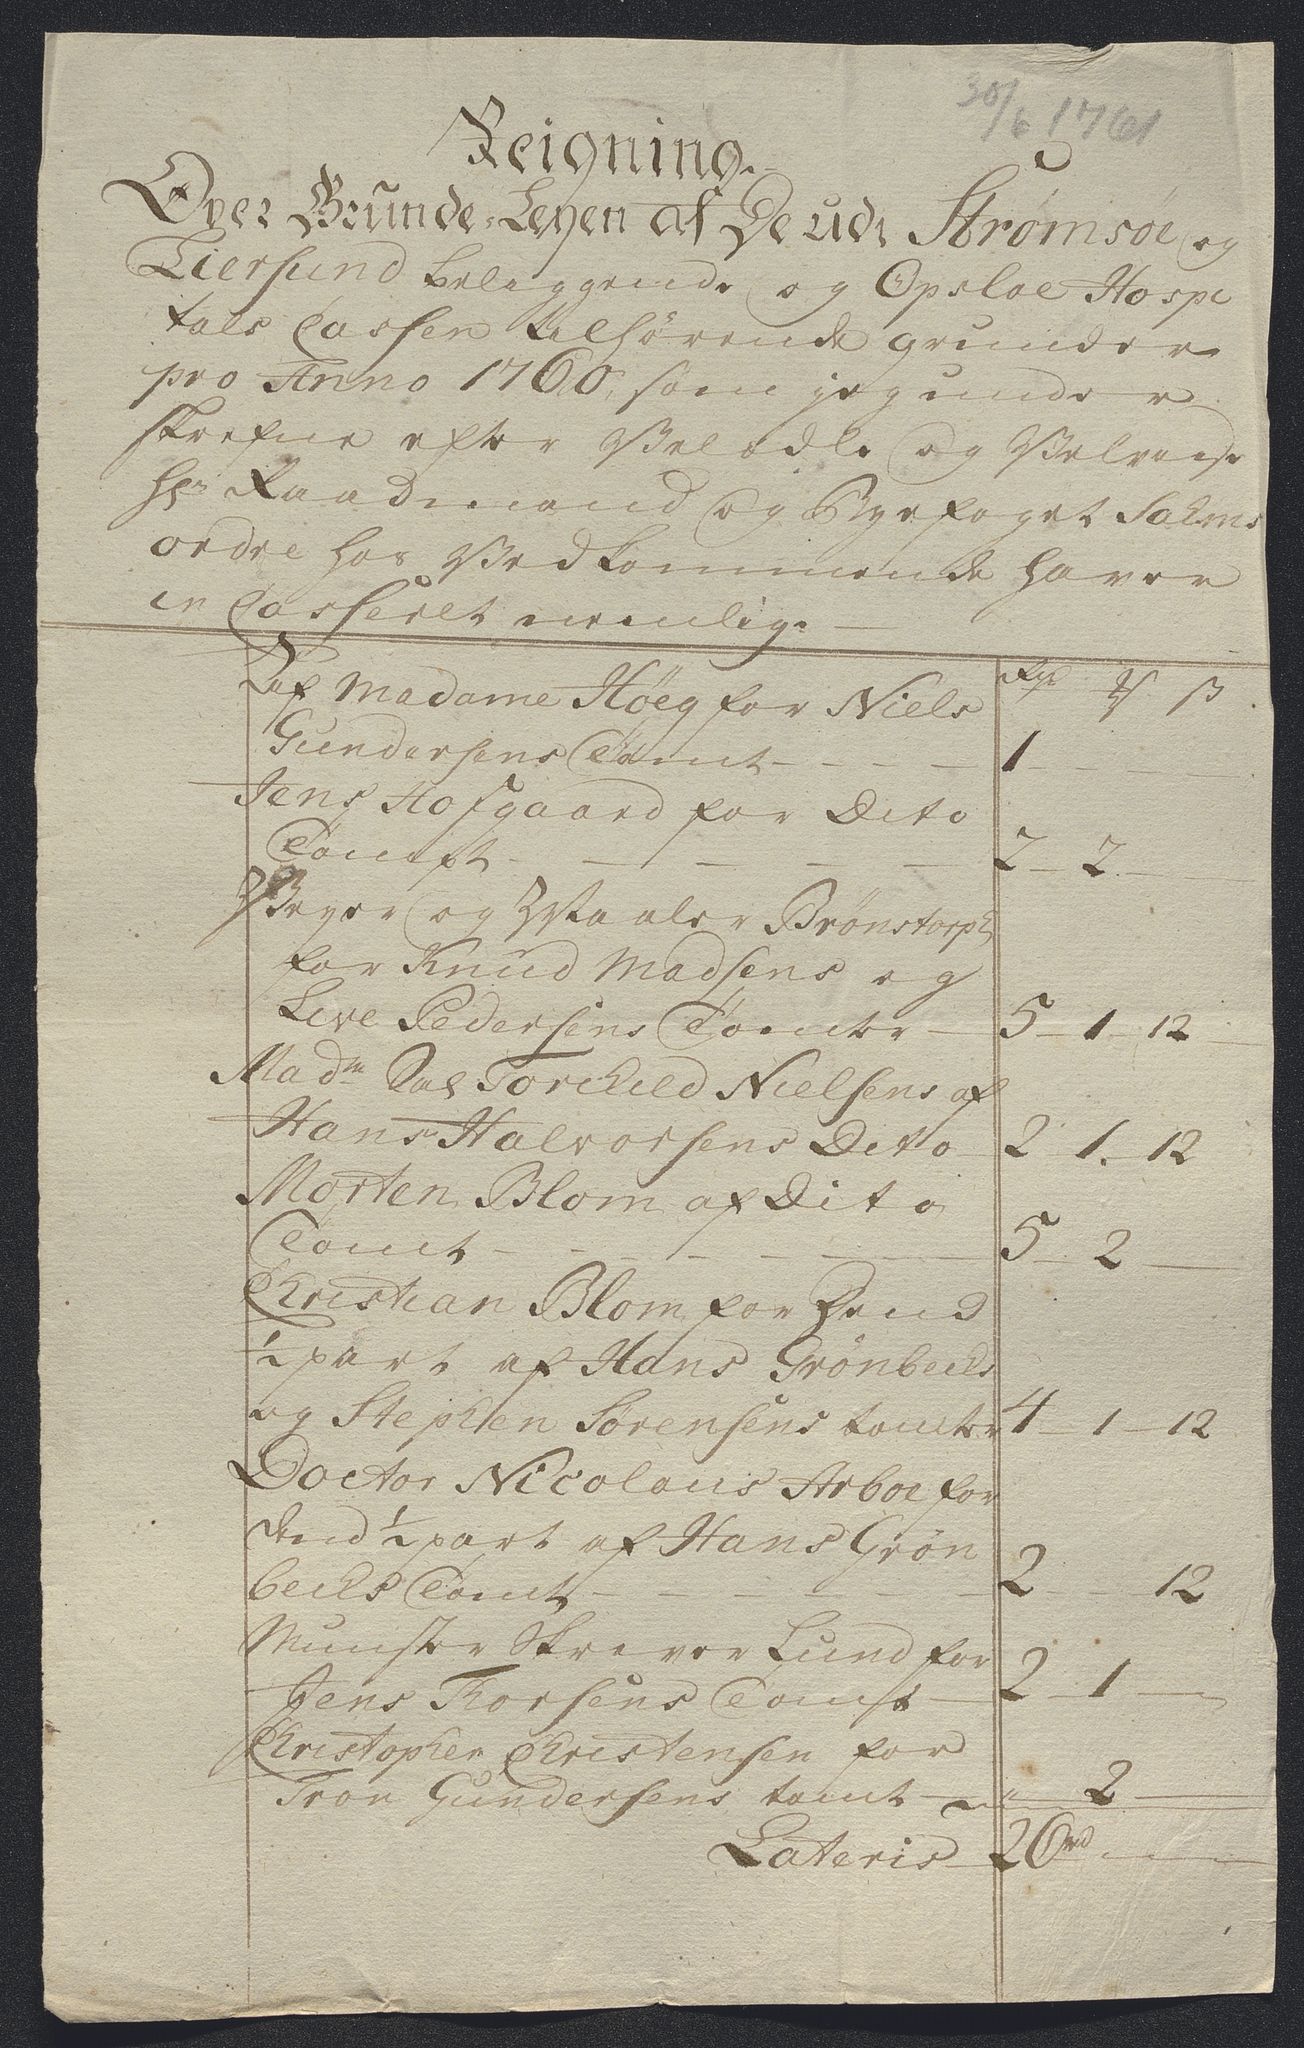 30/6 1761
Reigning.
Over Grunde-Leyen af De udi Strømsøe og
Liersund beliggende og Opsloe Hospi
tals Cassen tilhørende grunder
pro Anno 1760, som jeg under
skrefne efter Velædle og Velvise
Hr Raadmand og Byefoget Salms
ordre hos Vedkommende haver
in Casseret nemlig.
Af Madame Høeg for Niels
Gundersens Tomt - - - - 1 - - -
Jens Hofgaard for Dito
Tomt - - - - - 2 - 2 -
Beyer og Braarup
for Knud Madsens og
Live Pedersens Tomter - 5 - 1 - 12
Madm Sal Torchild Nielsens af
Hans Halvorsens Dito 2 - 1 - 12
Morten Blom af Dito
Tomt - - - - - - 5 - 2 -
Christian Blom for Dend
1/2 part af Hans Grønbechs
og Stephen Sørensens tomter 4 - 1 - 12
Doctor Nicolaus Arboe for
dend 1/2 part af Hans Grøn
bechs Tomt - - - - 2 - - 12
Munster Skriver Lund for
Jens Thorsens Tomt - 2 - 1 -
Christopher Christensen for
Tron Gundersens tomt - " 2 -
Lateris 26 rd - -